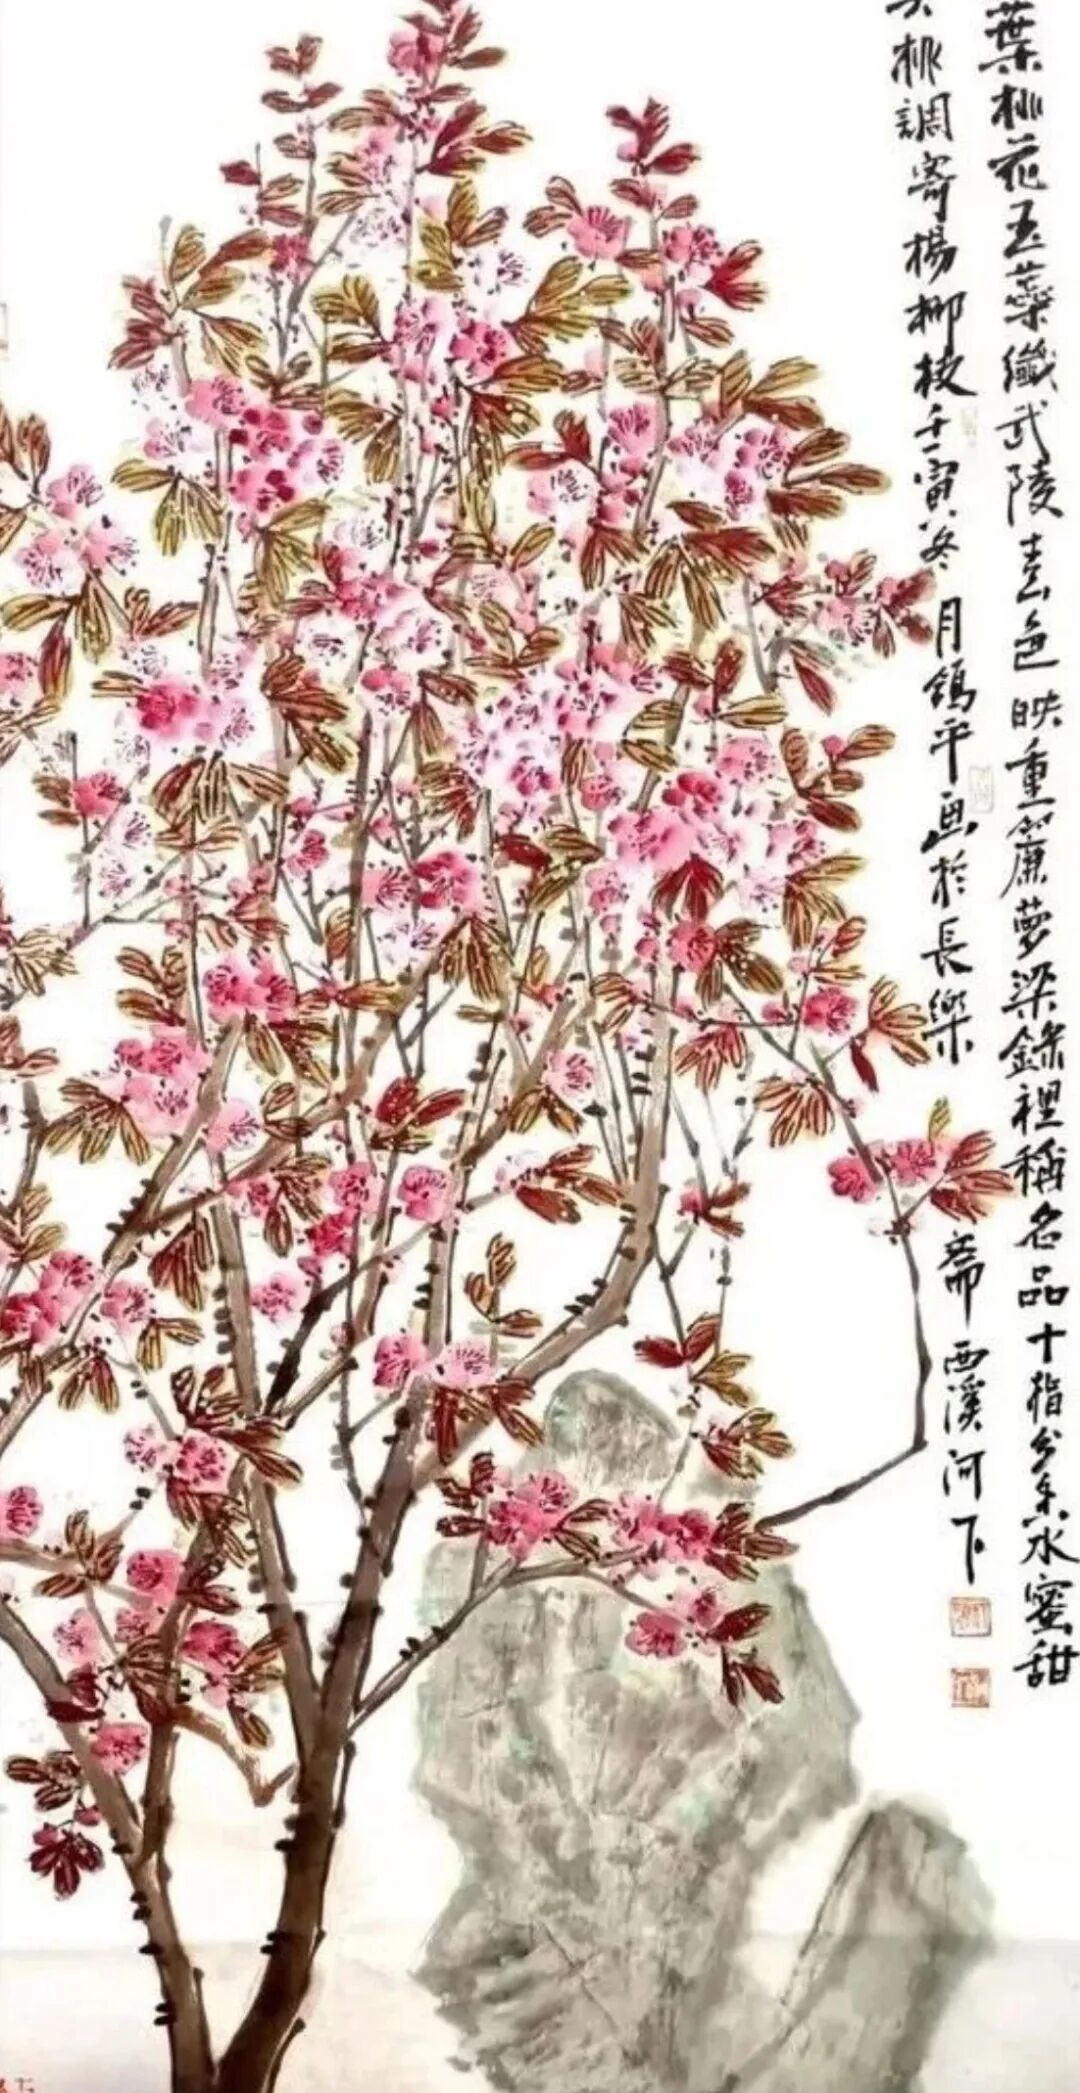 葉桃花玉蘂纖武陵春色映重簾夢粱錄裡稱名品十指分柔水蜜甜
桃調寄楊柳枝壬寅冬月鴿平画於長樂齋西溪河下